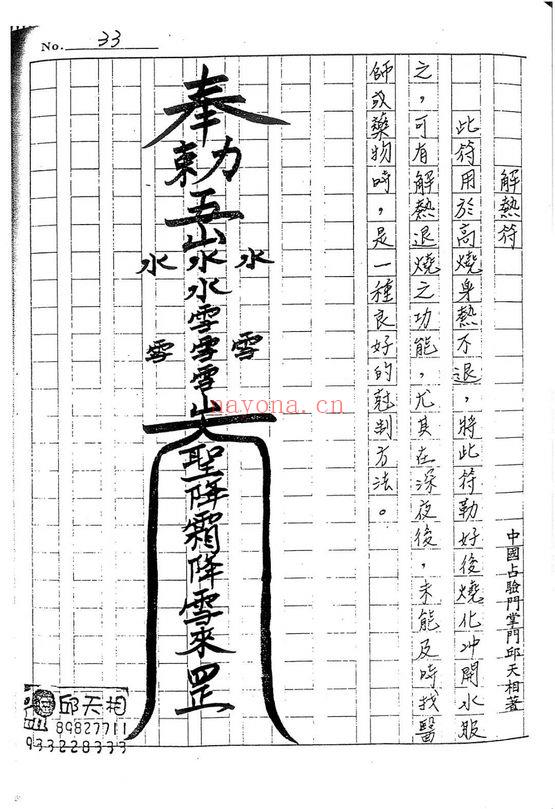 No. 33
解熱符
此符用於高燒身熱不退，將此符勅好後燒化沖開水服
之，可有解熱退燒之功能，尤其在深夜後，未能及時找醫
師或藥物時，是一種良好的尅制方法。
中國占驗門掌門邱天相著
奉
勅
水
雪
水
雪
水水雪雪雪
聖降霜降雪來罡
nayona.cn
邱天相
89827711
933228333